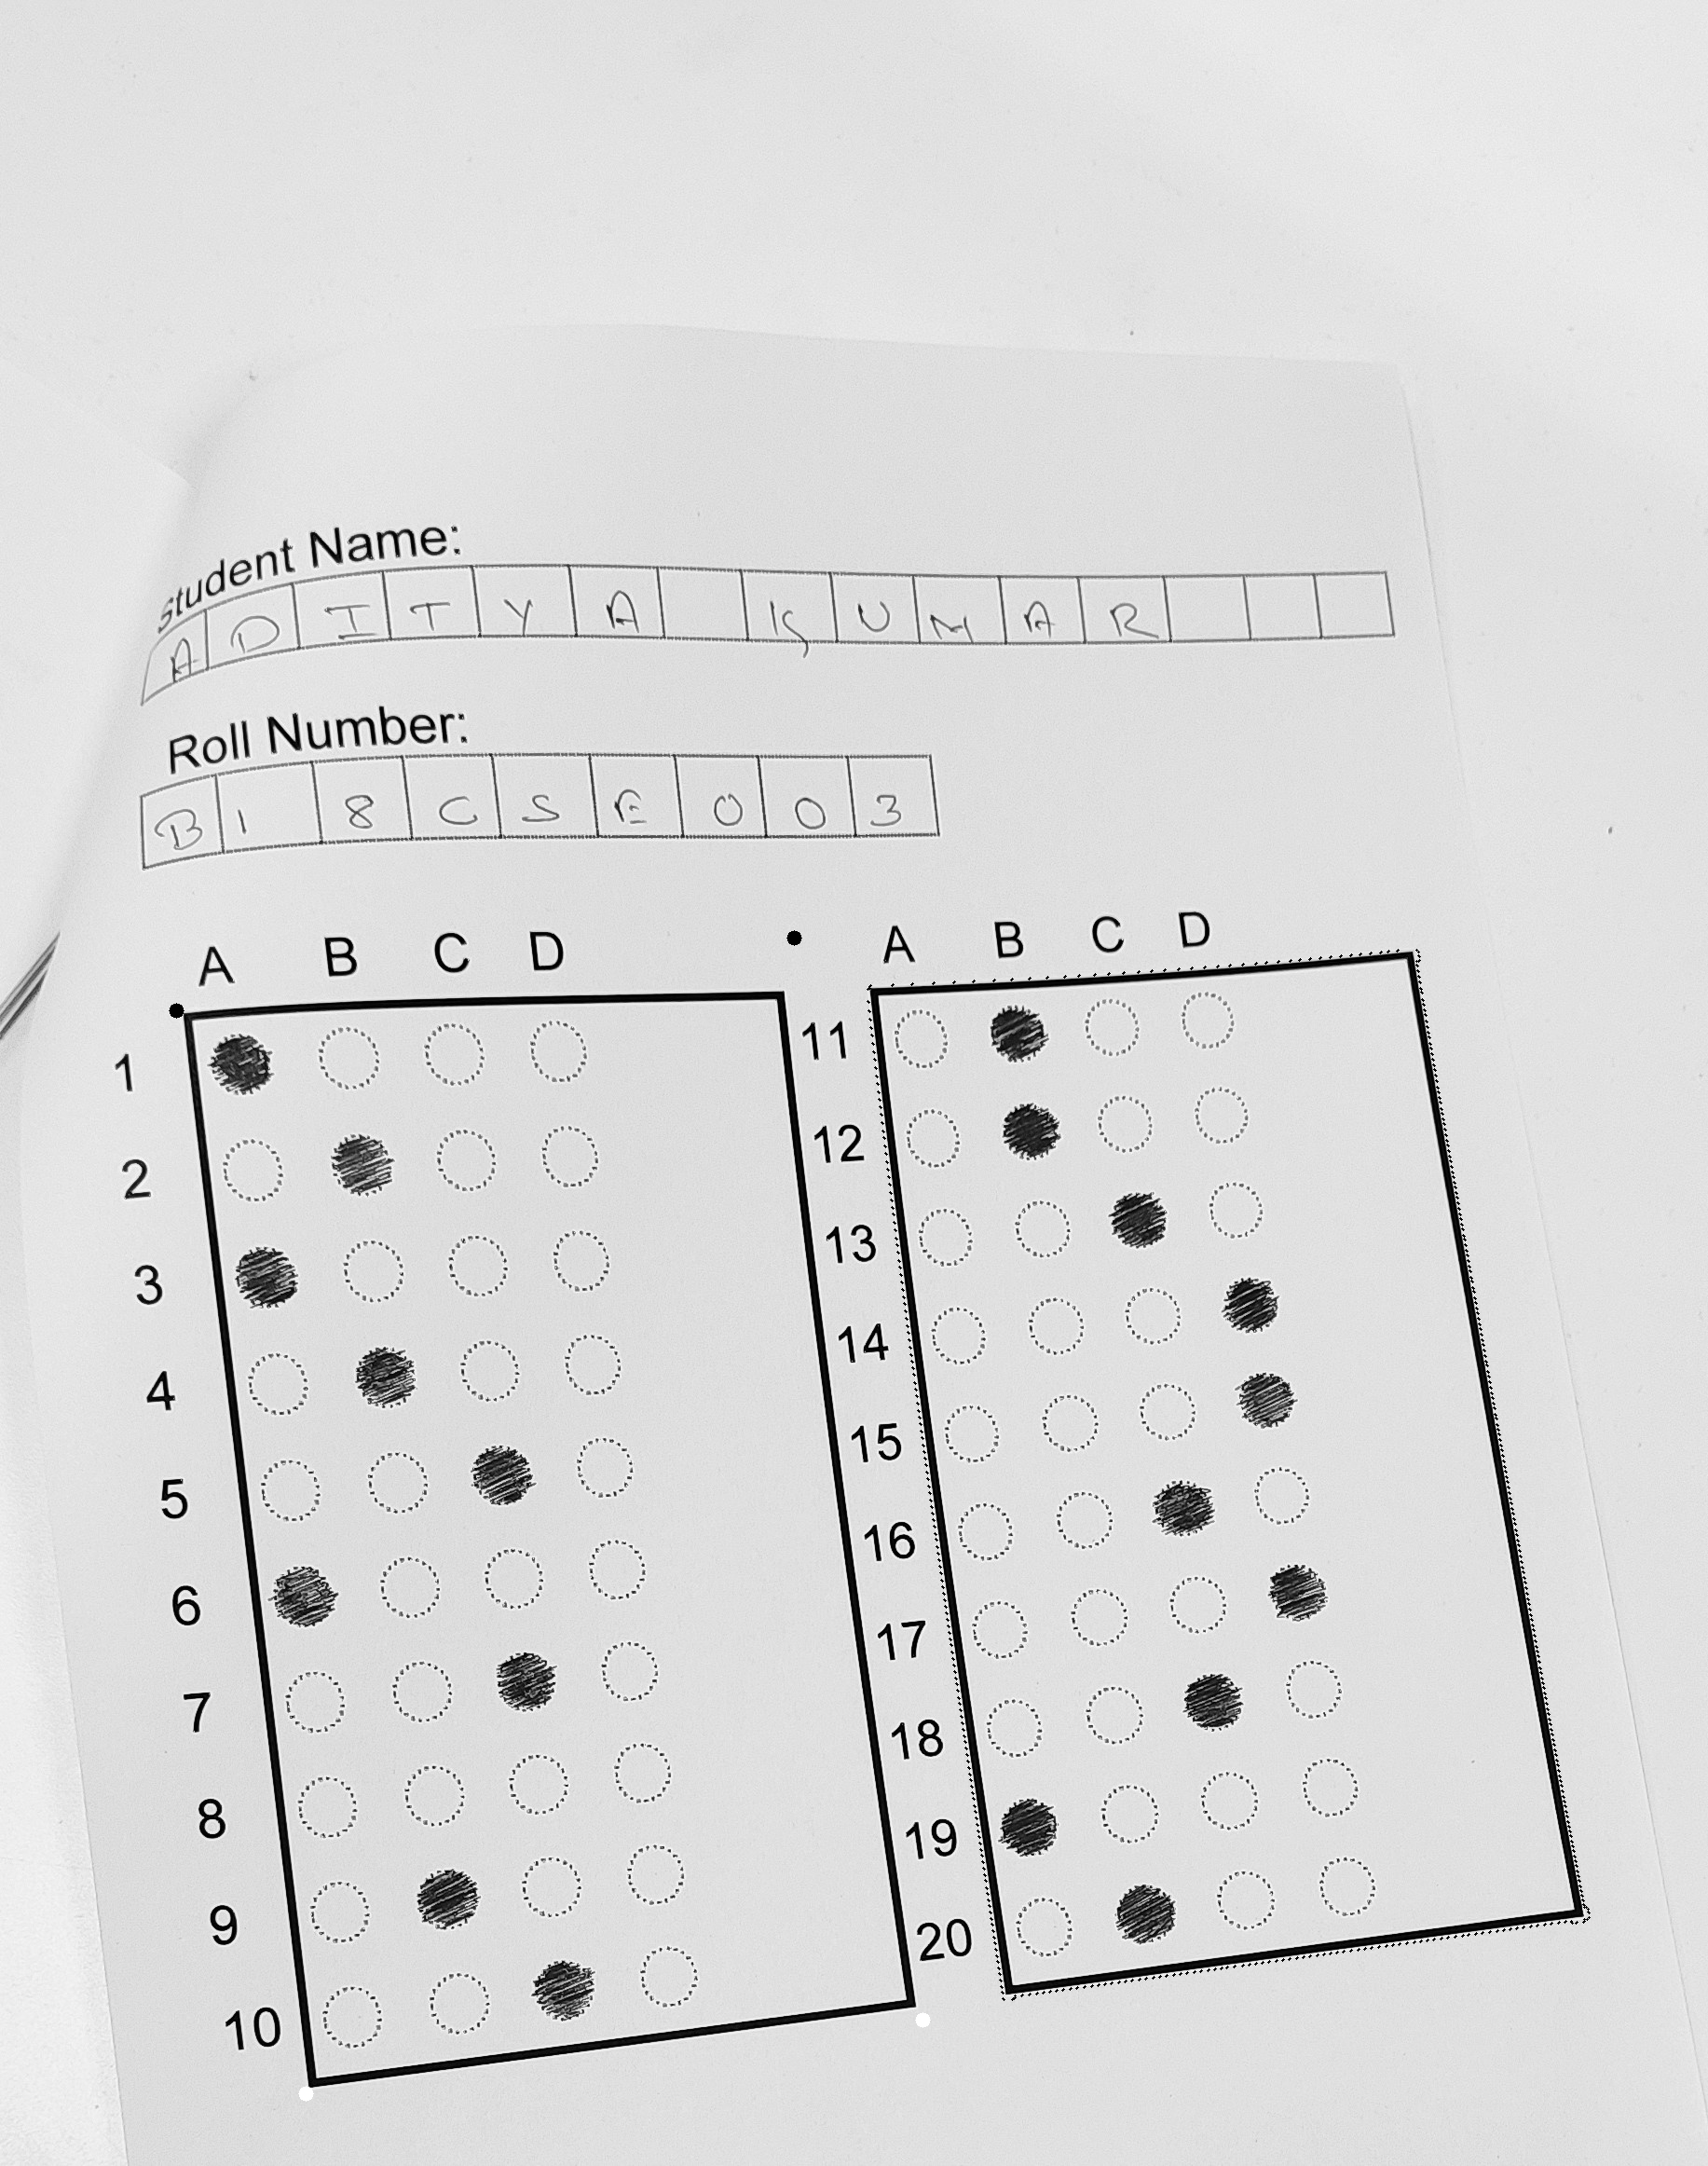 Student Name:
ADITYA KUMAR
Roll Number:
B18CSE003
A B C D
1
2
3
4
5
6
7
8
9
10
A B C D
11
12
13
14
15
16
17
18
19
20